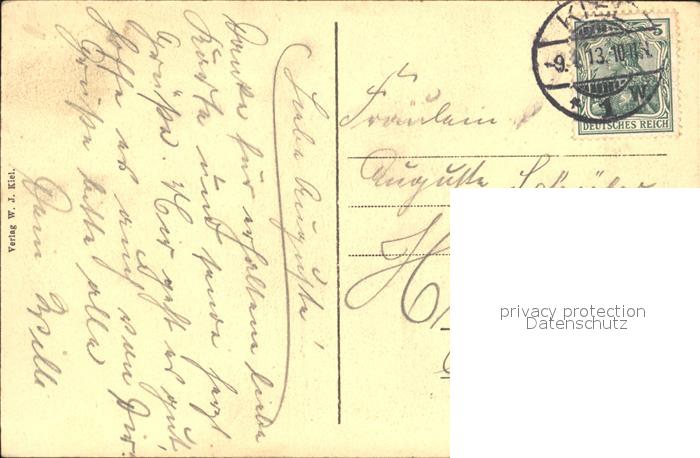 Liebe Auguste!
Danke für erhaltene liebe
Karte und sende herzl.
Grüße. Mir geht es gut
hoffe es auch von Dir.
Grüße bitte alle
Dein Willi
Verlag W. J. Kiel.
KIEL
9.4.13.10-11V.
1 W.
5
DEUTSCHES REICH
Fräulein
Auguste
H
privacy protection
Datenschutz